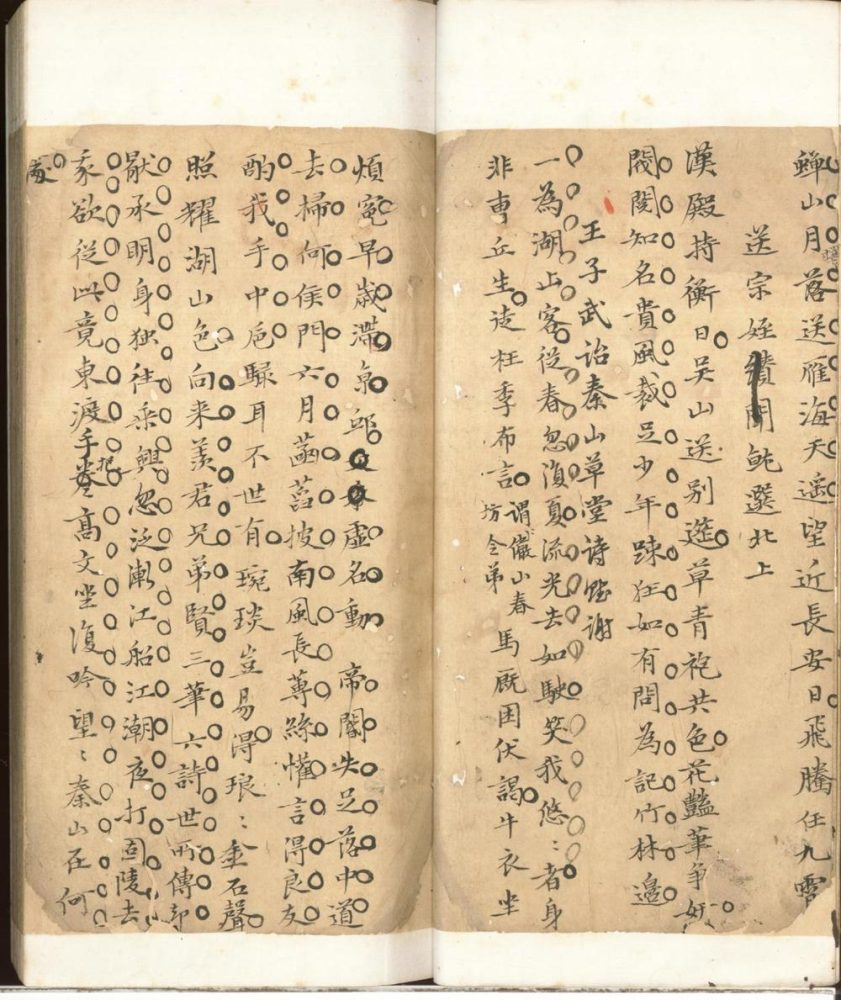 蟬山月落送雁海天遥望近長安日飛騰任九霄
送宗姪績開鮀選北上
漢殿持衡日吴山送别遊草青袍共色花豔筆争妍
閥閲知名貴風裁足少年踈狂如有問為記竹林邉
王子武詒秦山草堂诗賦謝
一為湖上客從春忽復夏流光去如駛笑我悠ミ者身
非専丘生遠枉季布言謂儼山春坊令弟馬厩困伏謁牛衣坐
煩寃早歳滯京邸虚名動帝閽失足落中道
去掃何侯門六月菡萏披南風長蓴絲懽言得良友
酌我手中巵騄耳不世有琬琰豈易得琅ミ金石聲
照耀湖山色向来羡君兄弟賢三華六詩世所傳却
猒承明身独往乗興忽泛浙江船江潮夜打固陵去
我欲従此竟東渡手把卷髙文坐復吟望ミ秦山在何
處